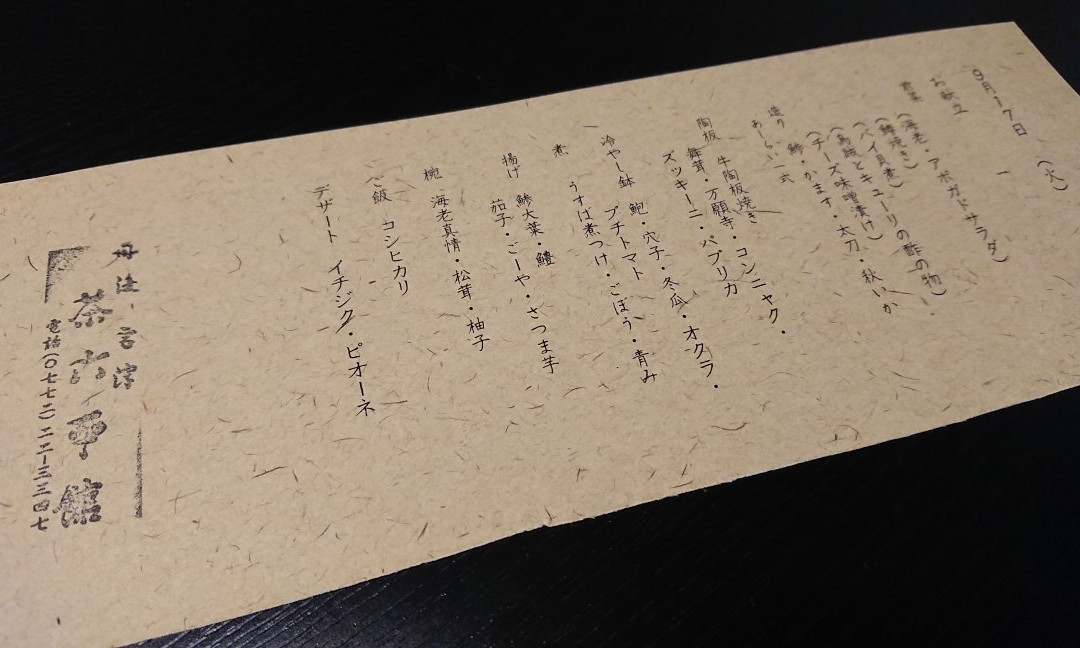 9月17日 (火)
お献立 一
前菜 (海老・アボガドサラダ)
(鱒焼き)
(バイ貝煮)
(鳥賊とキューリの酢の物)
(チーズ味噌漬け)
造り 鯵・かます・太刀・秋いか
あしらい一式
陶板 牛陶板焼き
舞茸・万願寺・コンニャク・
ズッキーニ・パプリカ
冷やし鉢 鮑・穴子・冬瓜・オクラ・
プチトマト
煮 うすば煮つけ・ごぼう・青み
揚げ 鯵大葉・鱧
茄子・ごーや・さつま芋
椀 海老真情・松茸・柚子
ご飯 コシヒカリ
デザート イチジク・ピオーネ
丹後 宮津
茶六本館
電話(〇七七二)二二ー三三四七